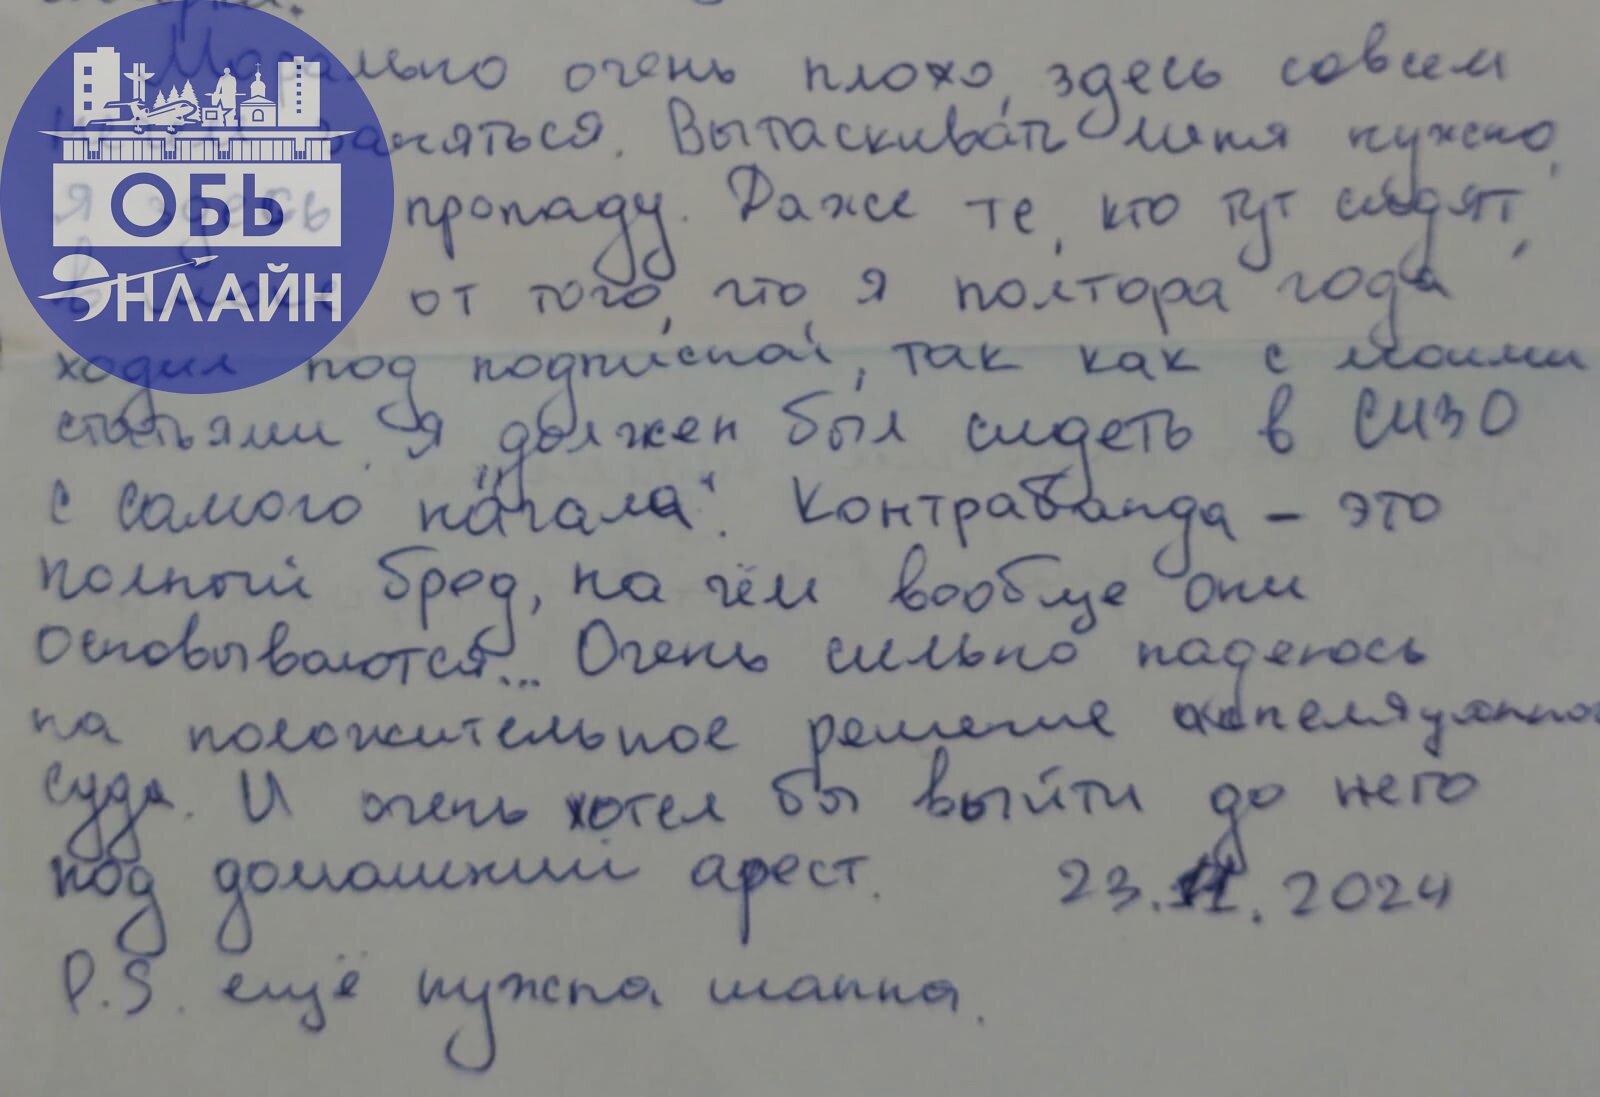 Морально очень плохо, здесь совсем
нечем заняться. Вытаскивать меня нужно,
я здесь пропаду. Даже те, кто тут сидят,
в шоке от того, что я полтора года
ходил под подпиской, так как с моими
статьями я "должен был сидеть в СИЗО
с самого начала". Контрабанда - это
полный бред, на чём вообще они
основываются... Очень сильно надеюсь
на положительное решение апелляционно
суда. И очень хотел бы выйти до него
под домашний арест. 23.11.2024
P.S. ещё нужна шапка.
ОБЬ
ОНЛАЙН